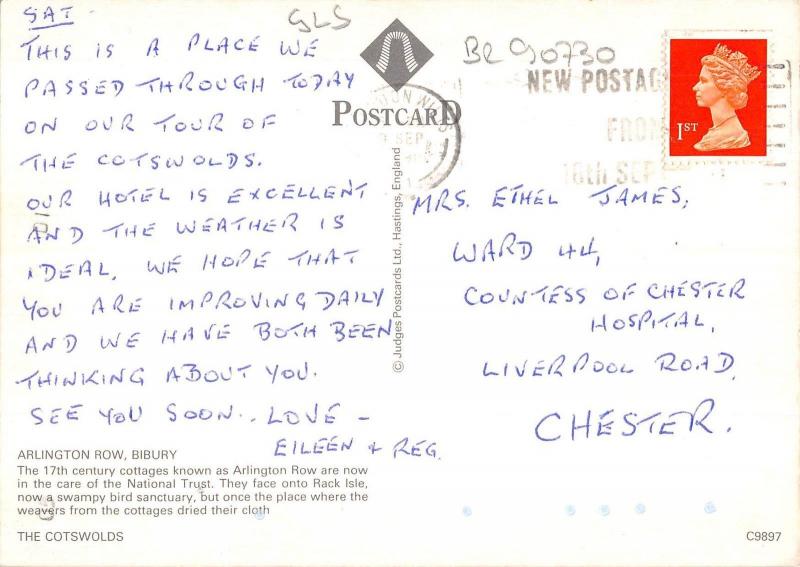 SAT
THIS IS A PLACE WE
PASSED THROUGH TODAY
ON OUR TOUR OF
THE COTSWOLDS.
OUR HOTEL IS EXCELLENT
AND THE WEATHER IS
IDEAL. WE HOPE THAT
YOU ARE IMPROVING DAILY
AND WE HAVE BOTH BEEN
THINKING ABOUT YOU.
SEE YOU SOON.. LOVE -
EILEEN + REG.
ARLINGTON ROW, BIBURY
The 17th century cottages known as Arlington Row are now
in the care of the National Trust. They face onto Rack Isle,
now a swampy bird sanctuary, but once the place where the
weavers from the cottages dried their cloth
THE COTSWOLDS
GLS
POSTCARD
© Judges Postcards Ltd., Hastings, England
BL 90730
NEW POSTAG
FROM
16th SEP
SEP
1ST
MRS. ETHEL JAMES,
WARD 44,
COUNTESS OF CHESTER
HOSPITAL,
LIVERPOOL ROAD,
CHESTER.
C9897